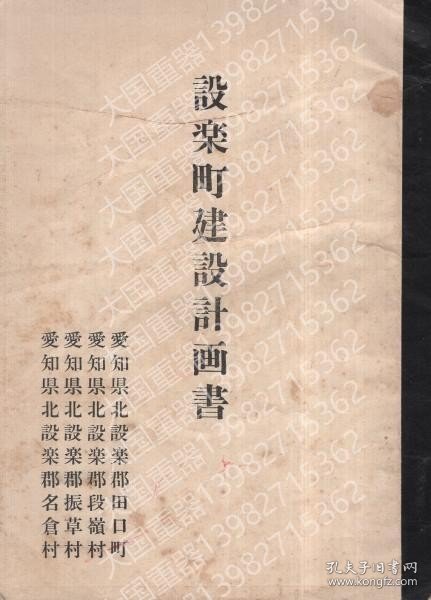 設楽町建設計画書
愛知県北設楽郡田口町
愛知県北設楽郡段嶺村
愛知県北設楽郡振草村
愛知県北設楽郡名倉村
大国重器13982715362
孔夫子旧书网
www.kongfz.com